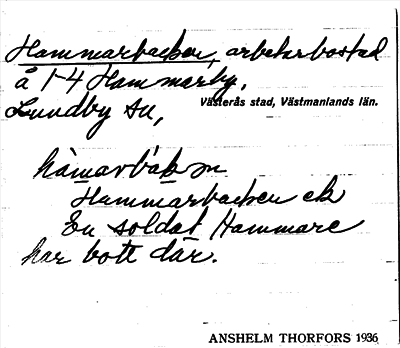 Hammarbacken, arbetarbostad
å 1-4 Hammarby,
Lundby sn,
Västerås stad, Västmanlands län.
håmarbakən
Hammarbacken ek
En soldat Hammare
har bott där.
ANSHELM THORFORS 1936